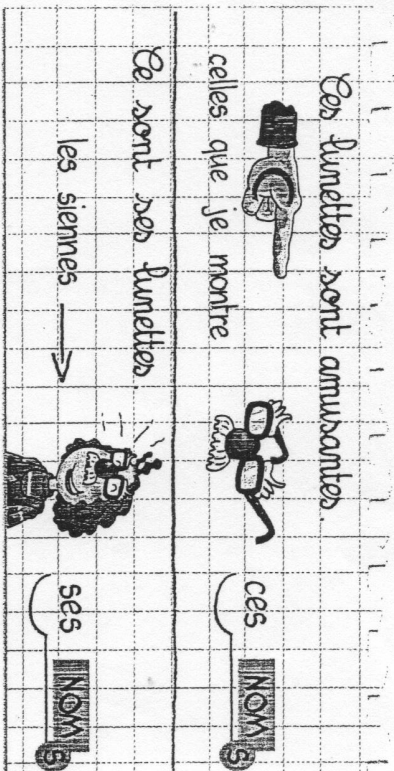 Ces lunettes sont amusantes.
celles que je montre
ces NOM s
Ce sont ses lunettes.
les siennes
ses NOM s